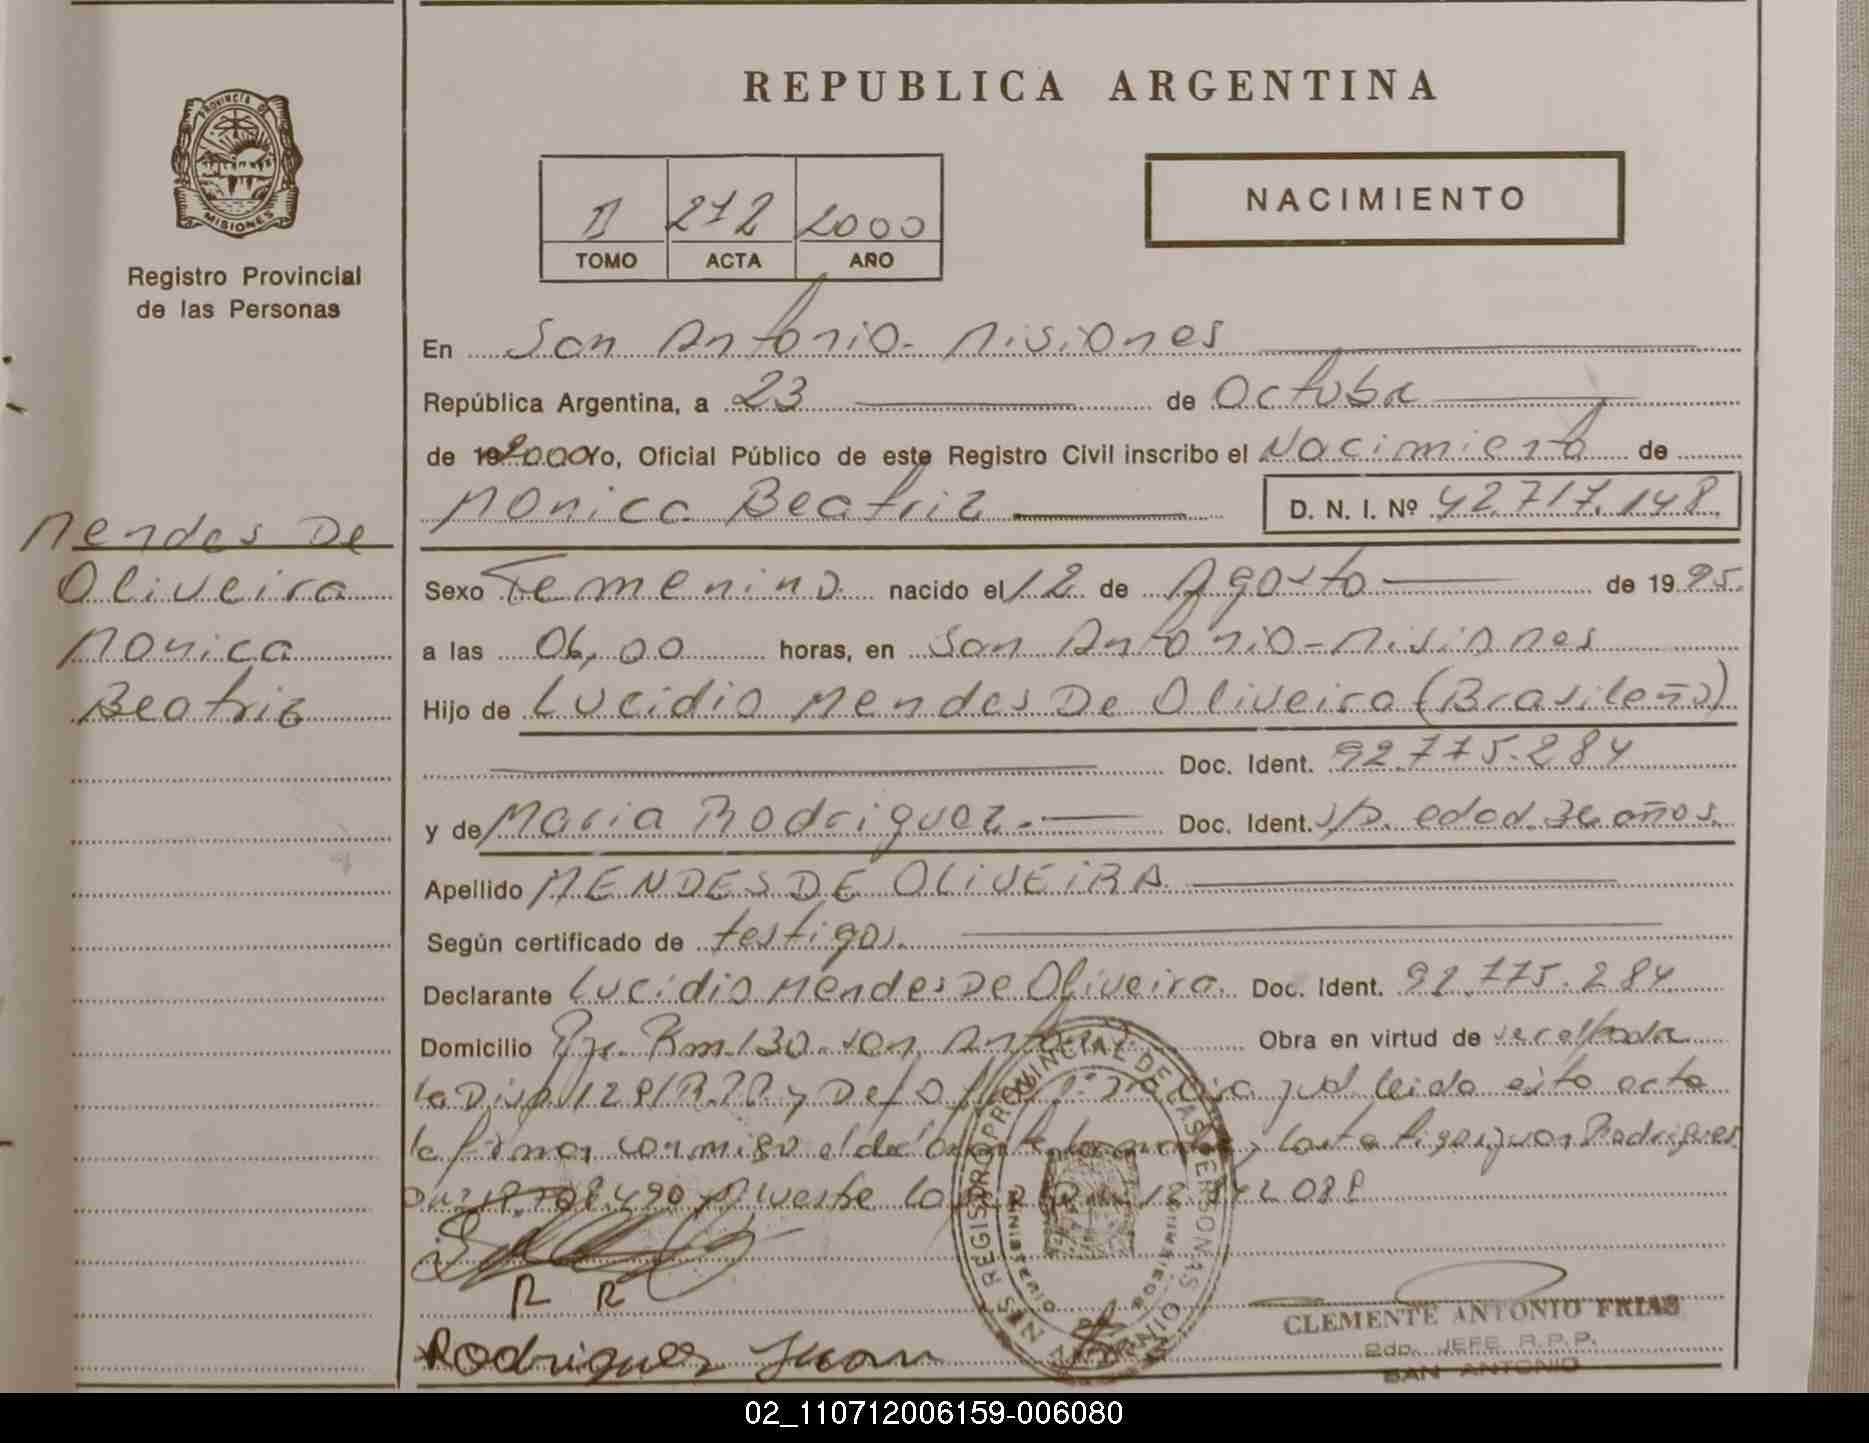 PROVINCIA DE
MISIONES
Registro Provincial
de las Personas
Mendes De
Oliveira
Monica
Beatriz
REPUBLICA ARGENTINA
II 212 2000
TOMO ACTA AÑO
NACIMIENTO
En San Antonio - Misiones
República Argentina, a 23 de Octubre
de 19 2000 Yo, Oficial Público de este Registro Civil inscribo el Nacimiento de
Monica Beatriz D. N. I. Nº 42.717.148
Sexo Femenino nacido el 12 de Agosto de 1995.
a las 06,00 horas, en San Antonio - Misiones
Hijo de Lucidio Mendes De Oliveira (Brasileño)
Doc. Ident. 92.775.284
y de Maria Rodriguez.- Doc. Ident. s/D. edad 36 años.
Apellido MENDES DE OLIVEIRA
Según certificado de testigos.
Declarante Lucidio Mendes De Oliveira. Doc. Ident. 92.775.284
Domicilio Km.130. San Obra en virtud de
la leida esta acta
la conmigo el Juan Rodrigues
R R
Rodriguez Juan
REGISTRO PROVINCIAL DE LAS PERSONAS
CLEMENTE ANTONIO FRIAS
JEFE R.P.P.
SAN ANTONIO
02_110712006159-006080